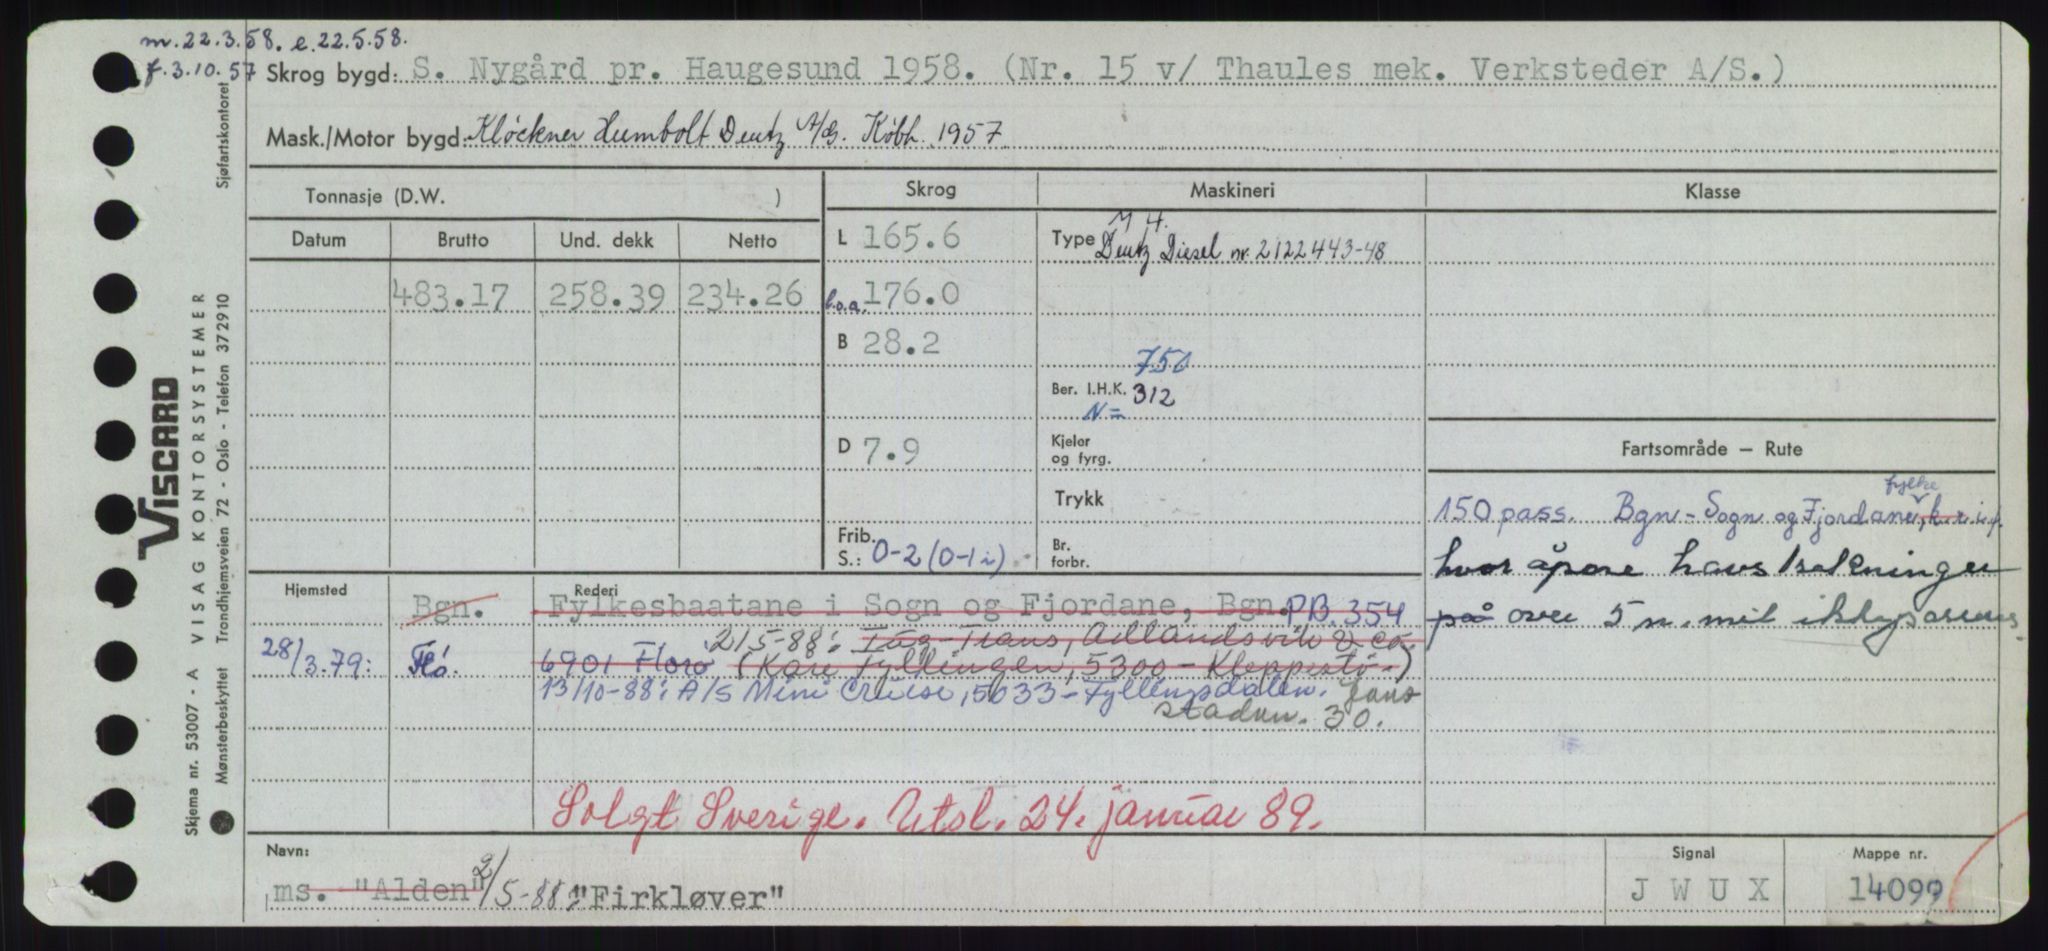 m. 22.3.58. e. 22.5.58.
f. 3.10.57 Skrog bygd: S. Nygård pr. Haugesund 1958. (Nr. 15 v/ Thaules mek. Verksteder A/S.)
Mask./Motor bygd: Klöckner Humbolt Deutz A/G. Købh. 1957
Tonnasje (D.W. )
Skrog
Maskineri
Klasse
Datum Brutto Und. dekk Netto
483.17 258.39 234.26
L 165.6
l.o.a. 176.0
B 28.2
D 7.9
Frib.
S.: 0-2 (0-1 i)
M 4.
Type Deutz Diesel nr. 2122443-48
750
Ber. I.H.K. 312
N =
Kjeler
og fyrg.
Trykk
Br.
forbr.
Fartsområde – Rute
fylke
150 pass. Bgn - Sogn og Fjordane,
hvor åpne havstrekninger
på over 5 n. mil ikke
Hjemsted
Rederi
Bgn. Fylkesbaatane i Sogn og Fjordane, Bgn. P.B. 354
2/5-88: Tug-Trans, Adlandsvik & Co.
28/3.79: Flö. 6901 Florö (Kåre Fyllingen, 5300 - Kleppestö -)
13/10-88: A/S Mini Cruise, 5033 - Fyllingsdalen.
30.
Solgt Sverige. Utsl. 24. januar 89.
Navn:
ms. "Alden" 2/5-88: "Firkløver"
Signal
J W U X
Mappe nr.
14099
Sjøfartskontoret
VISCARD
VISAG KONTORSYSTEMER
Trondhjemsveien 72 - Oslo - Telefon 372910
Skjema nr. 53007 - A
Mønsterbeskyttet